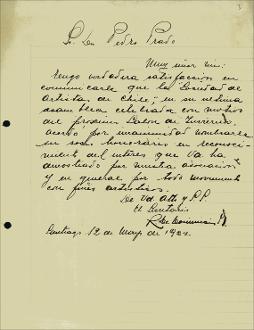 Sr. Don Pedro Prado
Muy señor mio:
Tengo verdadera satisfacción en
comunicarle que la Sociedad de
Artistas de Chile, en su ultima
asamblea celebrada con motivo
del proximo Salon de Invierno,
acordó por unanimidad nombrarle
su socio honorario en reconoci-
miento del interes que Ud ha
demostrado por nuestra asociación
y en general por todo movimiento
con fines artisticos.
De Ud. Atto y S.S.
El Secretario
Santiago 12 de Mayo de